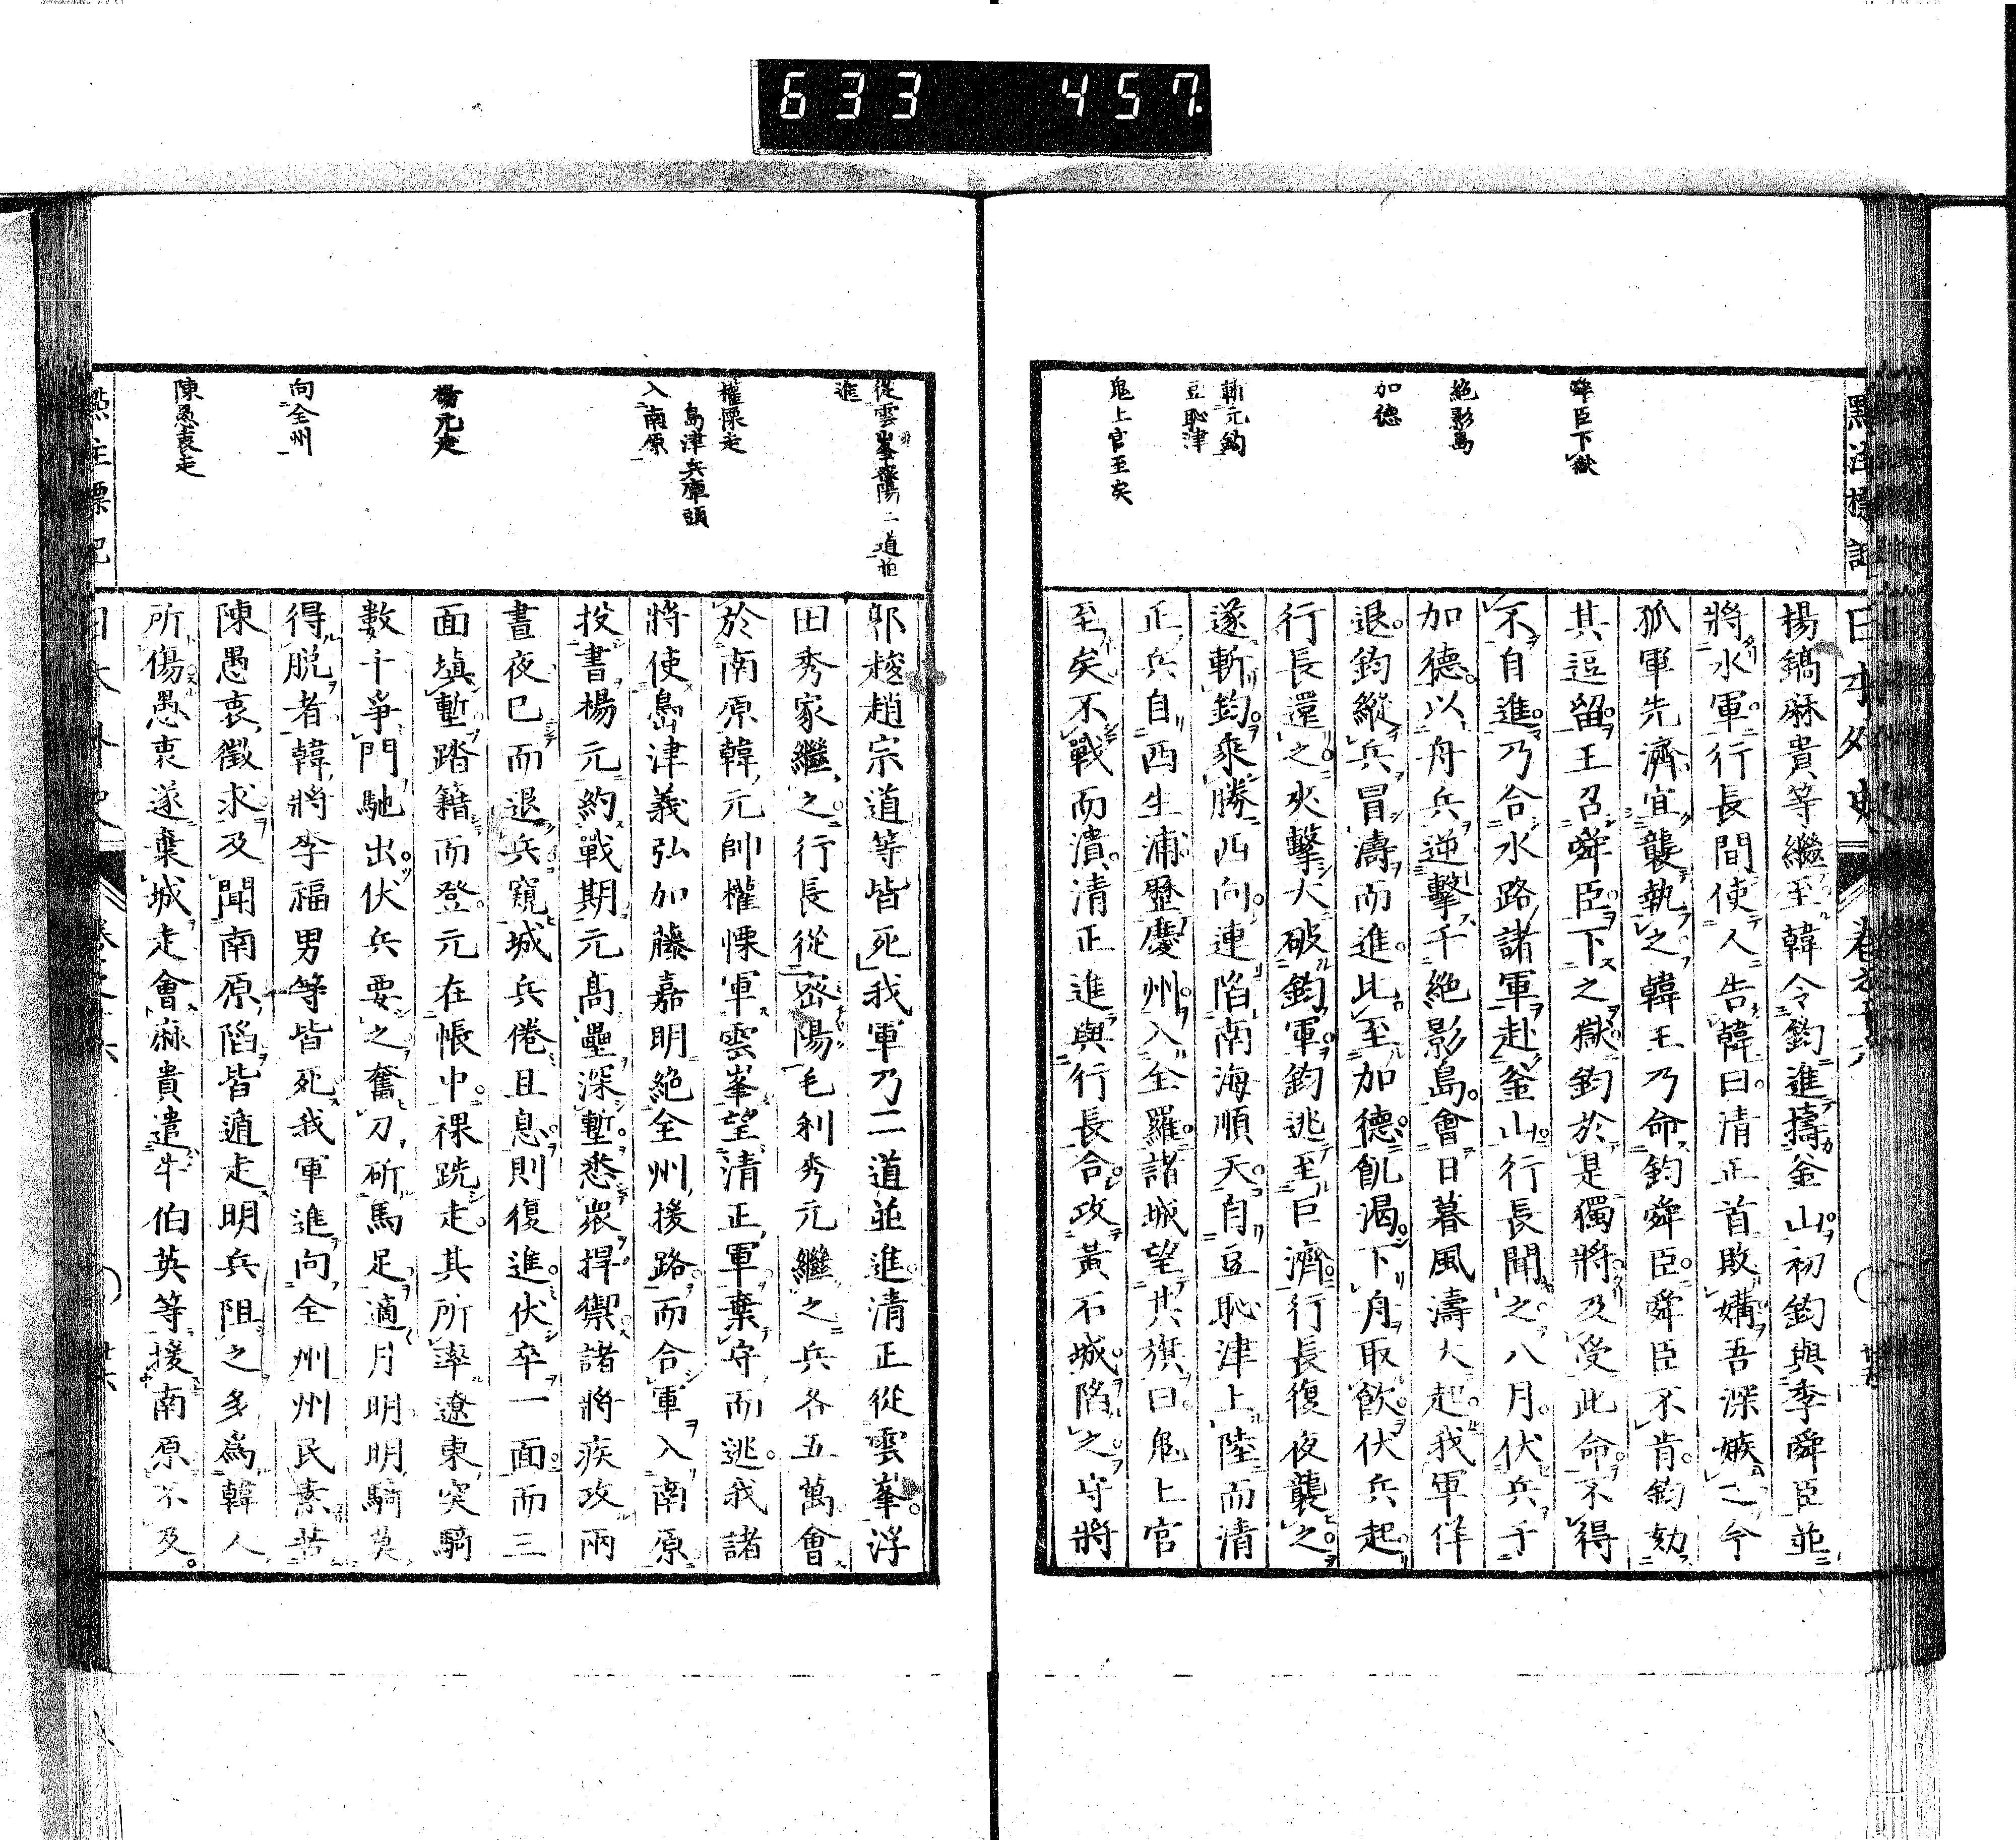 633 457.
舜臣下獄
絕影島
加德
斬元鈞
豆恥津
鬼上官至矣
揚鎬麻貴等繼至韓令鈞進擣釜山初鈞與李舜臣並
將水軍行長間使人告韓曰清正首敗媾吾深嫉之今
孤軍先濟宜襲執之韓王乃命鈞舜臣舜臣不肯鈞劾
其逗留王召舜臣下之獄鈞於是獨將及受此命不得
不自進乃合水路諸軍赴釜山行長聞之八月伏兵于
加德以舟兵逆擊于絕影島會日暮風濤大起我軍佯
退鈞縱兵冒濤而進比至加德飢渴下舟取飲伏兵起
行長還之夾擊大破鈞軍鈞逃至巨濟行長復夜襲之
遂斬鈞乘勝西向連陷南海順天自豆恥津上陸而清
正兵自西生浦歷慶州入全羅諸城望其旗曰鬼上官
至矣不戰而潰清正進與行長合攻黃石城陷之守將
從雲峯密陽二道並
進
權慄走
島津兵庫頭
入南原
楊元走
向全州
陳愚衷走
郭䞭趙宗道等皆死我軍乃二道並進清正從雲峯浮
田秀家繼之行長從密陽毛利秀元繼之兵各五萬會
於南原韓元帥權慄軍雲峯望清正軍棄守而逃我諸
將使島津義弘加藤嘉明絕全州援路而合軍入南原
投書楊元約戰期元高壘深塹悉眾捍禦諸將疾攻兩
晝夜已而退兵窺城兵倦且息則復進伏卒一面而三
面塡塹踏籍而登元在帳中裸跣走其所率遼東突騎
數千爭門馳出伏兵要之奮刀斫馬足適月明明騎莫
得脱者韓將李福男等皆死我軍進向全州州民素苦
陳愚衷徵求及聞南原陷皆遁走明兵阻之多爲韓人
所傷愚衷遂棄城走會麻貴遣牛伯英等援南原不及